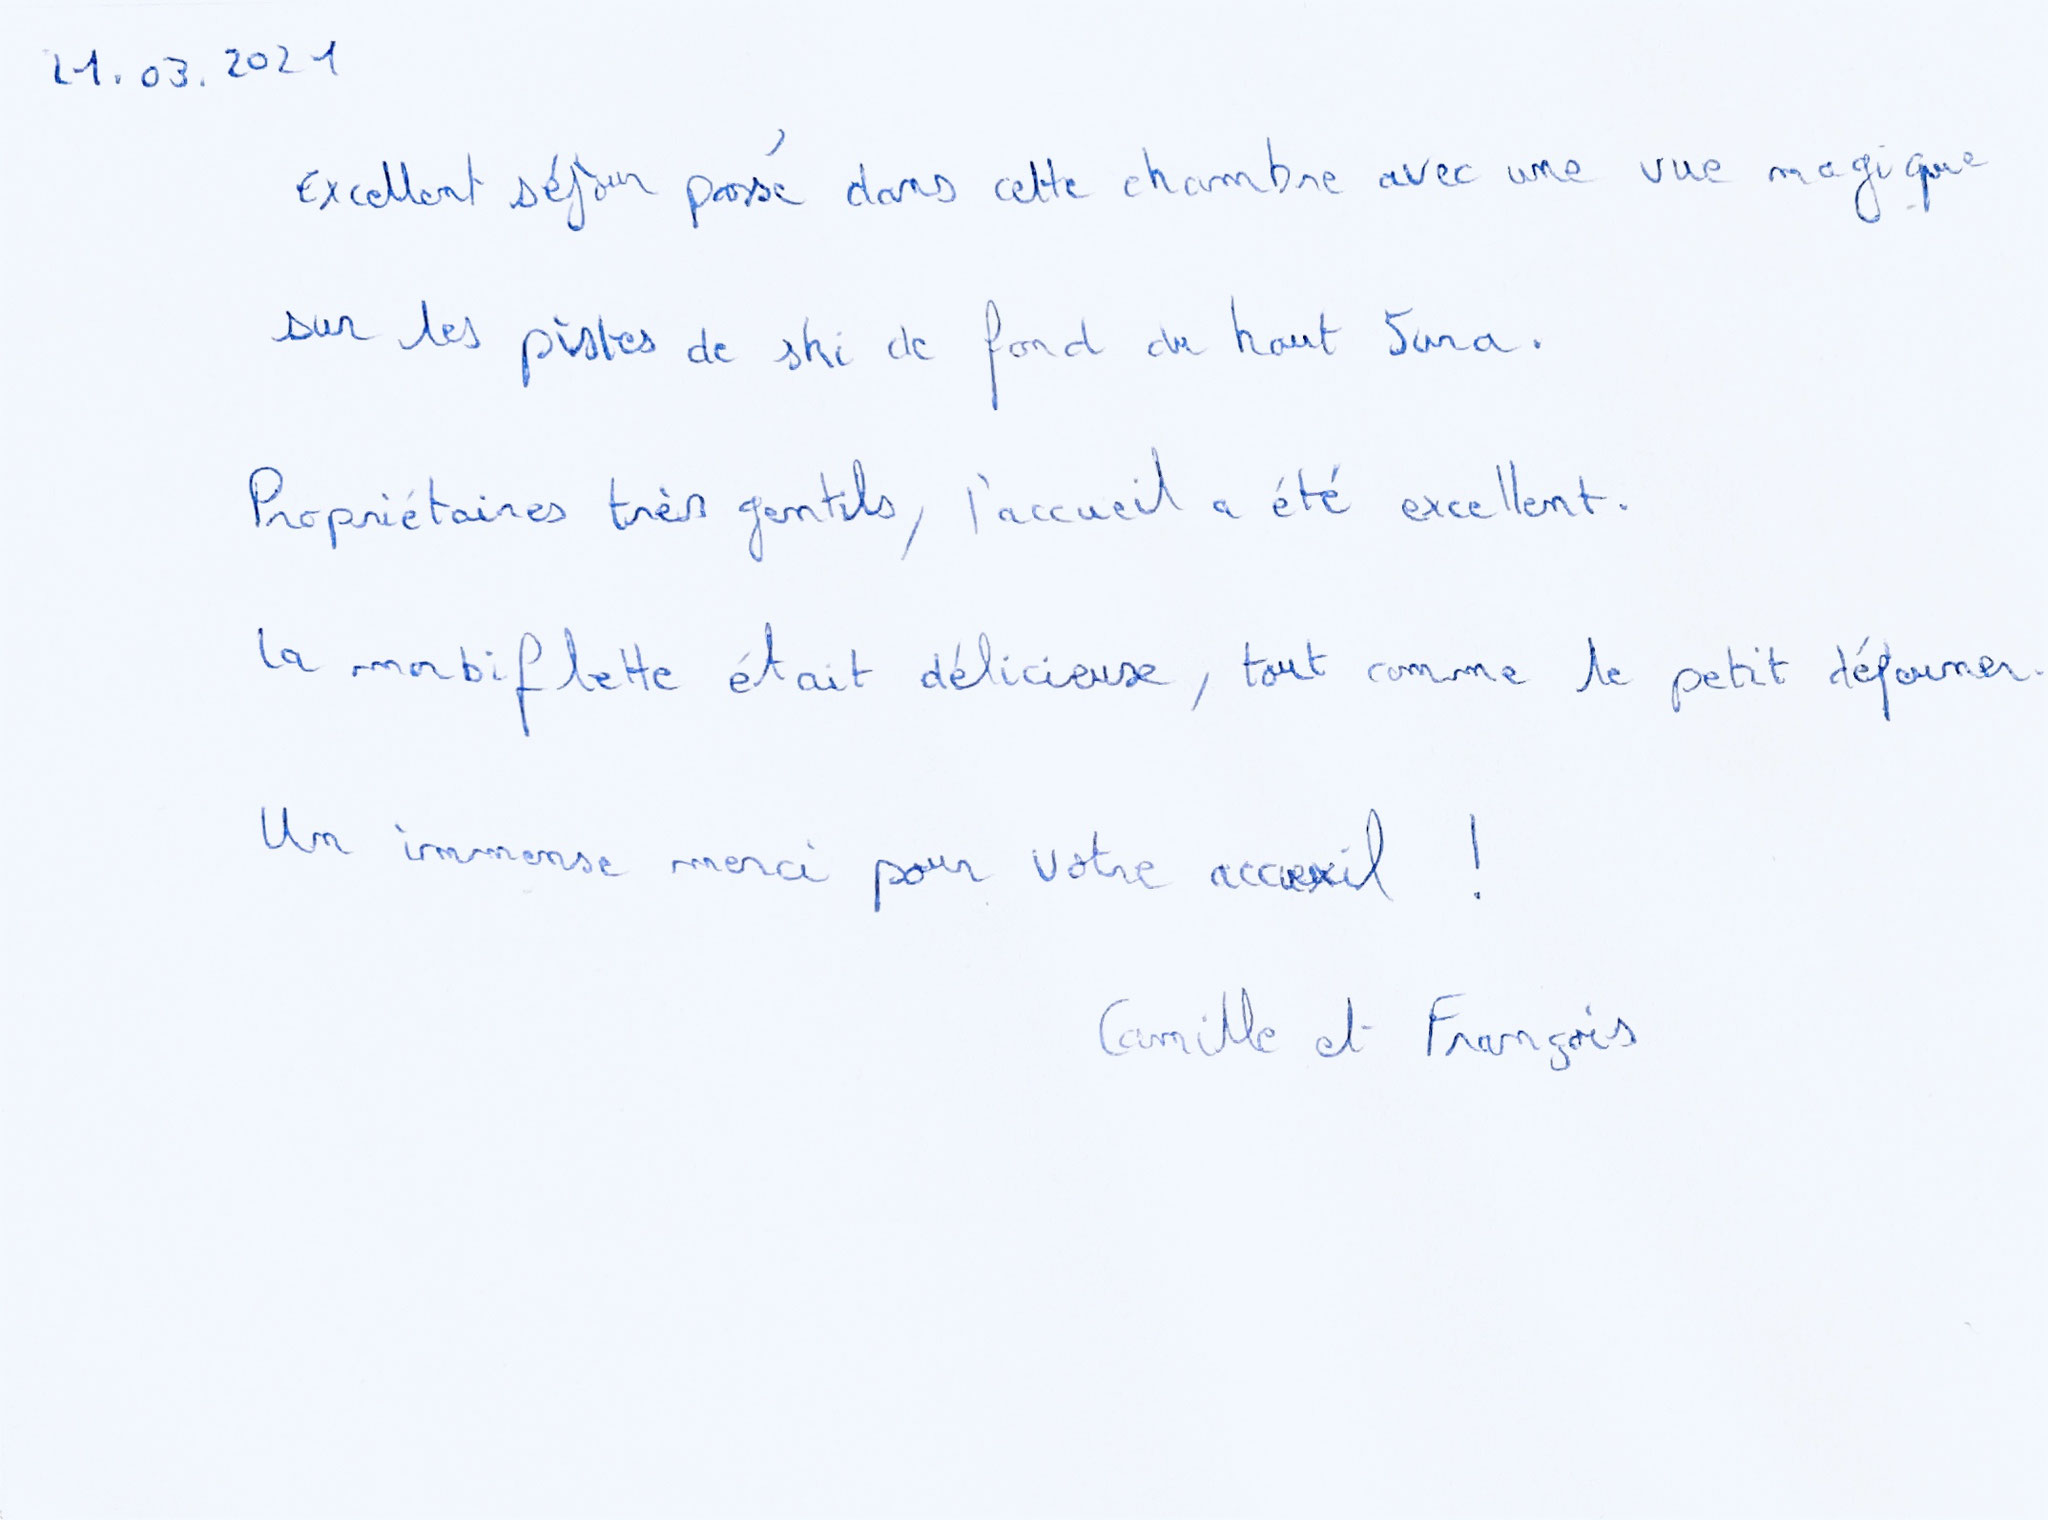 21.03.2021
Excellent séjour passé dans cette chambre avec une vue magique
sur les pistes de ski de fond du haut Jura.
Propriétaires très gentils, l'accueil a été excellent.
la morbiflette était délicieuse, tout comme le petit déjeuner.
Un immense merci pour votre accueil !
Camille et François